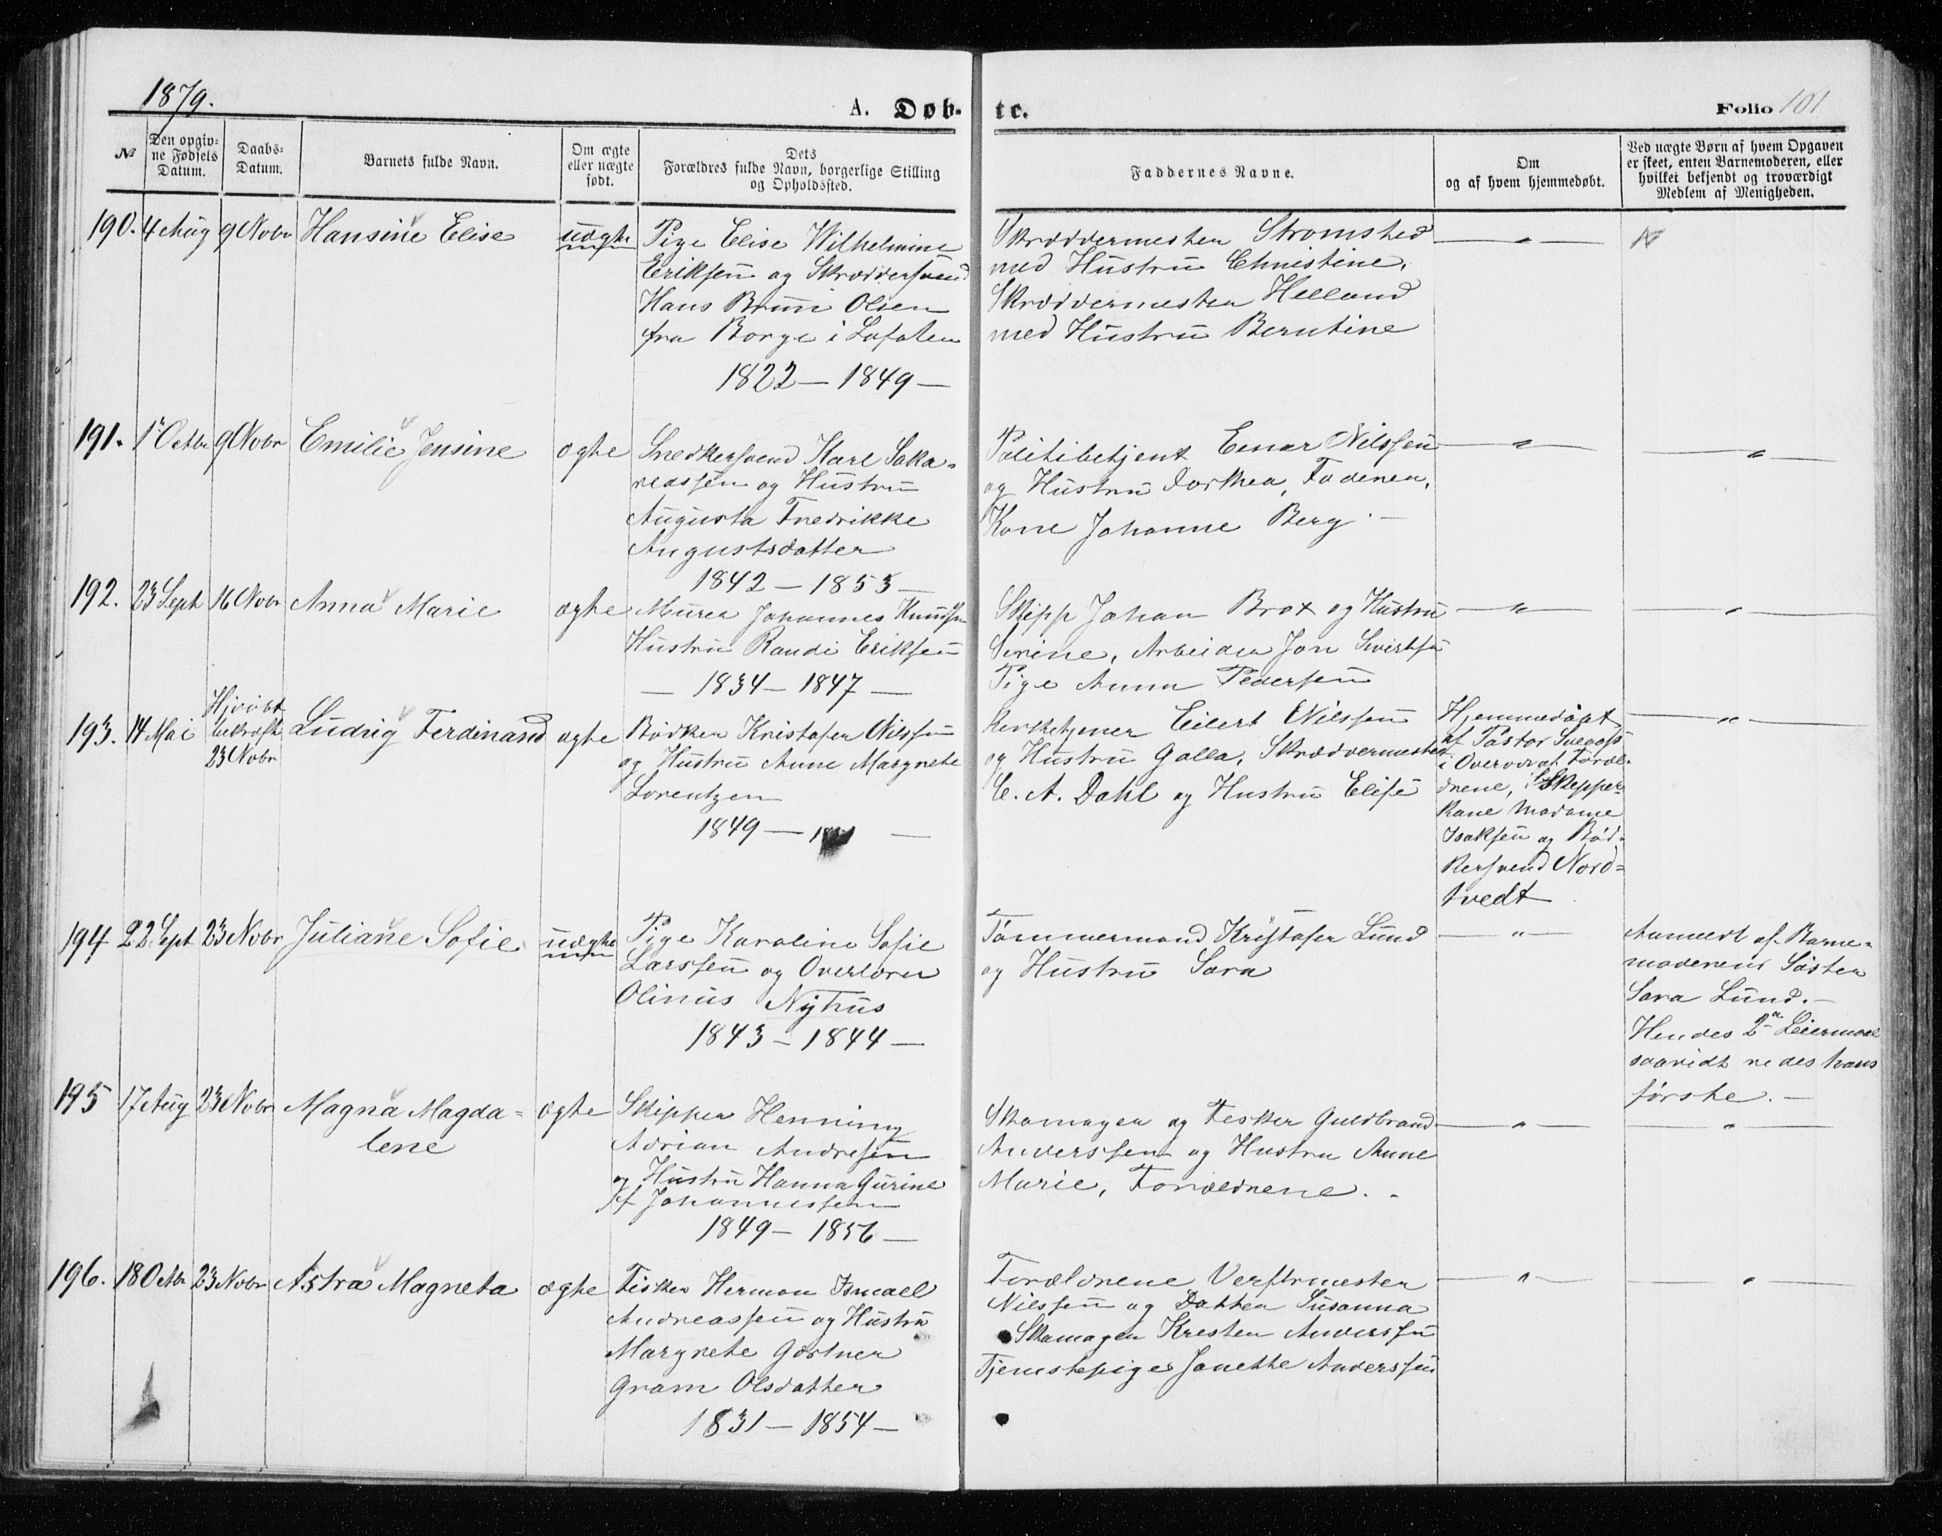 1879.
A. Døb-
te.
Folio 101
№
Den opgiv-
ne Fødsels
Datum.
Daabs-
Datum.
Barnets fulde Navn.
Om ægte
eller uægte
født.
Dets
Forældres fulde Navn, borgerlige Stilling
og Opholdssted.
Faddernes Navne.
Om
og af hvem hjemmedøbt.
Ved uægte Børn af hvem Opgaven
er skeet, enten Barnemoderen, eller
hvilket bekjendt og troværdigt
Medlem af Menigheden.
190. 4 Aug 9 Novbr Hansine Elise uægte
Pige Elise Wilhelmine
Eriksen og Skræddersvend
Hans Bruun Olsen
fra Borge i Lofoten
1822 — 1849 —
Skræddermester Stromsted
med Hustru Christine,
Skræddermester Helland
med Hustru Berntine
— " —
191. 1 Octbr 9 Novbr Emilie Jensine ægte
Snedkersvend Karl Saka-
riassen og Hustru
Augusta Fredrikke
Augustsdatter
1842 — 1853 —
Politibetjent Einar Nilssen
og Hustru Dorthea, Faderen,
Kone Johanne Berg. —
— " —
— " —
192. 23 Sept 16 Novbr Anna Marie ægte
Murer Johannes Knudsen
Hustru Randi Eriksen
— 1834 — 1847 —
Skipp Johan Brox og Hustru
Serine, Arbeider Jon Sivertsen
Pige Anna Pedersen
— " —
— " —
193. 14 Mai
Hjdøbt
bekræft
23 Novbr
Ludvig Ferdinand ægte
Bødker Kristofer Nilssen
og Hustru Anne Margrete
Lorentzen
1849 —
Kirketjener Eilert Nilssen
og Hustru Galla, Skræddermester
C. A. Dahl og Hustru Elise
Hjemmedøbt
af Pastor
i Overvær af Foræl-
drene, Skipper-
kone Madame
Isaksen og Bød-
kersvend Nord-
tvedt
— " —
194 22 Sept 23 Novbr Juliane Sofie. uægte
Pige Karoline Sofie
Larssen og Overlærer
Olinus Nyhus
1843 — 1844 —
Tømmermand Kristofer Lund
og Hustru Sara
— " —
Anmeldt af Barne-
moderens Søster
Sara Lund. —
Hendes 2den Leiermaal
saavidt vides hans
første. —
195 17 Aug 23 Novbr Magna Magda-
lene
ægte
Skipper Henning
Adrian Andresen
og Hustru Hanna Gurine
f Johannessen
1849 — 1856 —
Skomager og Fisker Guldbrand
Anderssen og Hustru Anne
Marie, Forældrene. -
— " —
— " —
196. 18 Octbr 23 Novbr Astra Magneta ægte
Fisker Herman Ismael
Andreassen og Hustru
Margrete Gørtner
Gram Olsdatter
1831 — 1854 —
Forældrene Verftmester
Nilssen og Datter Susanna
Skomager Kresten Anderssen
Tjenestepige Janette Anderssen
— " —
— " —